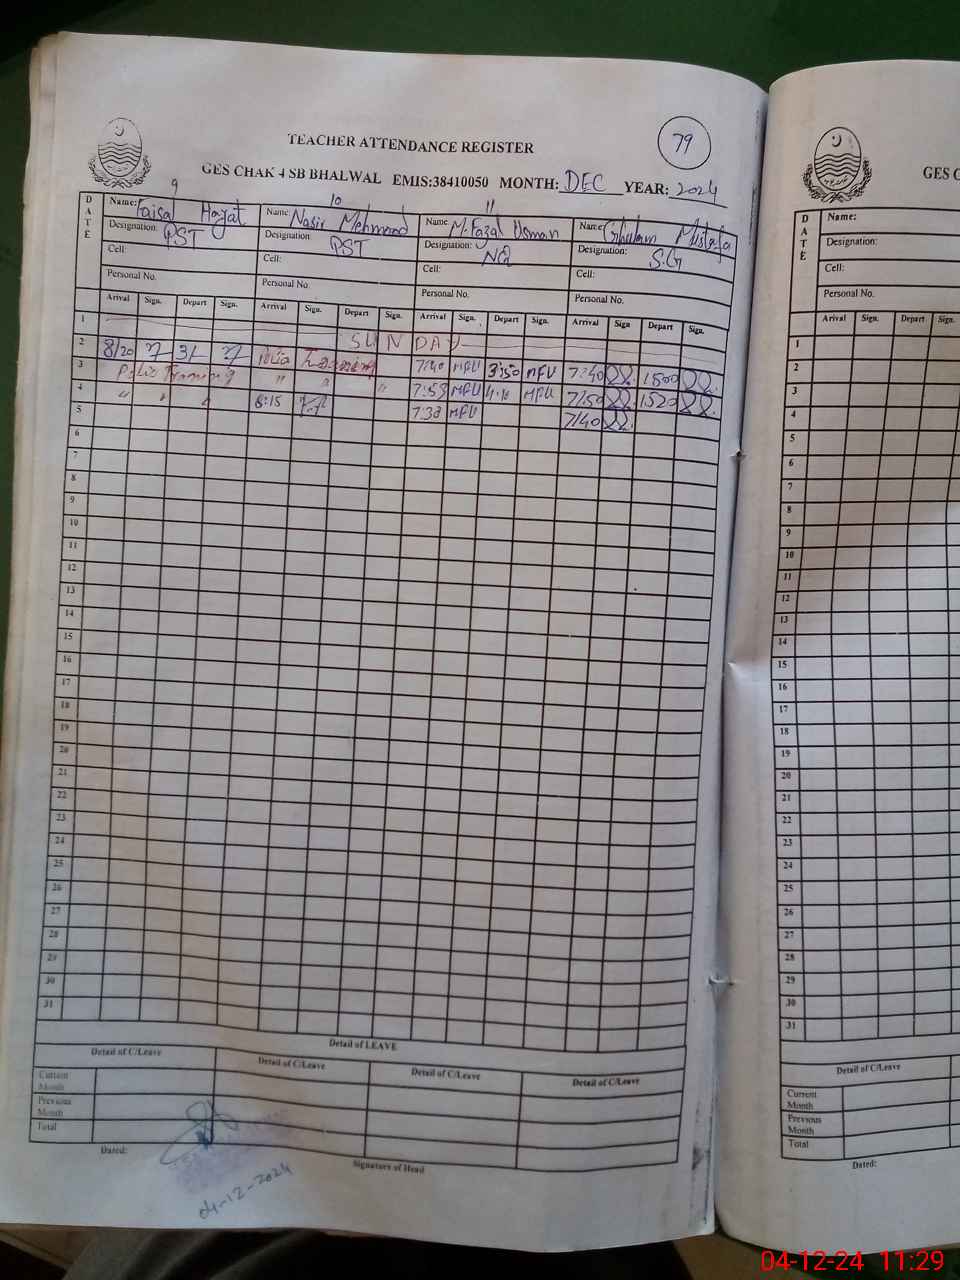 TEACHER ATTENDANCE REGISTER
79
GES CHAK 4 SB BHALWAL EMIS:38410050 MONTH: DEC YEAR: 2024
9 10 11
DATE
Name: Faisal Hayat Name: Nasir Mehmood Name: M. Fazal Usman Name: Ghulam Mustafa
Designation: PST Designation: PST Designation: NQ Designation: S.G
Cell: Cell: Cell: Cell:
Personal No. Personal No. Personal No. Personal No.
Arrival Sign. Depart Sign. Arrival Sign. Depart Sign. Arrival Sign. Depart Sign. Arrival Sign Depart Sign.
1 SUNDAY
2 8/20 3/- Training 7:40 MFU 3:50 MFU 7:40 1500
3 Polio Training " " " 7:53 MFU 4:10 MFU 7/50 1520
4 " " " 8:15 7:38 MFU 7/40
5
6
7
8
9
10
11
12
13
14
15
16
17
18
19
20
21
22
23
24
25
26
27
28
29
30
31
Detail of LEAVE
Detail of C/Leave Detail of C/Leave Detail of C/Leave Detail of C/Leave
Current Month
Previous Month
Total
Dated:
Signature of Head
04-12-2024
GES C
DATE
Name:
Designation:
Cell:
Personal No.
Arrival Sign. Depart Sign.
1
2
3
4
5
6
7
8
9
10
11
12
13
14
15
16
17
18
19
20
21
22
23
24
25
26
27
28
29
30
31
Detail of C/Leave
Current Month
Previous Month
Total
Dated:
04-12-24 11:29